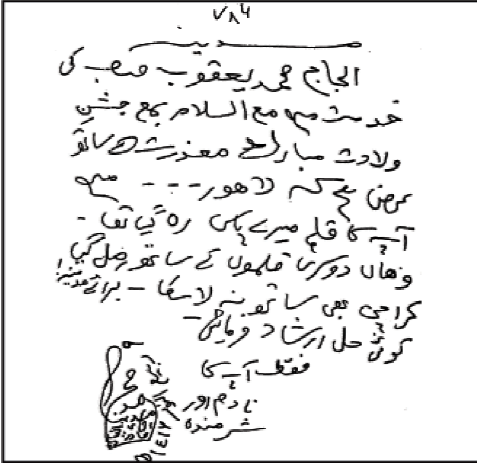 ٧٨٦
مدینہ
الحاج محمد یعقوب صاحب کی
خدمت میں مع السلام بمع جشنِ
ولادت مبارک معذرت کے ساتھ
عرض ہے کہ لاھور --- میں
آپ کا قلم میرے پاس رہ گیا تھا -
وھاں دوسری قلموں کے ساتھ مل گیا
کراچی بھی ساتھ نہ لا سکا - برائے مدینہ!
کوئی حل ارشاد فرمائیں -
فقط آپ کا
نادم اور
شرمندہ